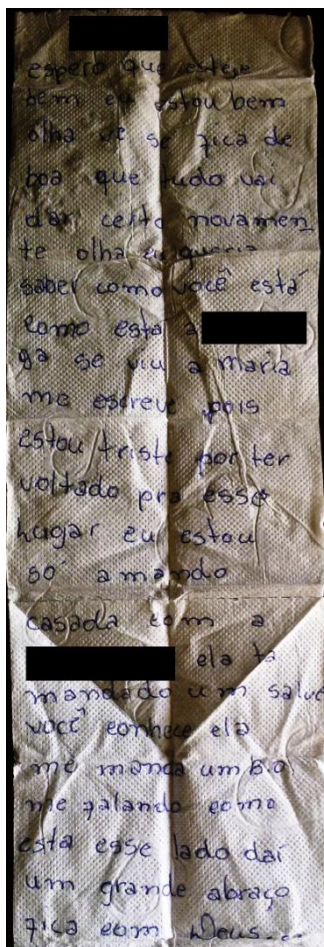 espero que esteje
bem eu estou bem
olha ve se fica de
boa que tudo vai
dar certo novamen
te olha eu queria
saber como você está
como esta a
ga se viu a maria
me escreve pois
estou triste por ter
voltado pra esse
lugar eu estou
só amando
casada com a
ela ta
mandado um salve
você conhece ela
me manda um B.O
me falando como
esta esse lado daí
um grande abraço
fica com Deus